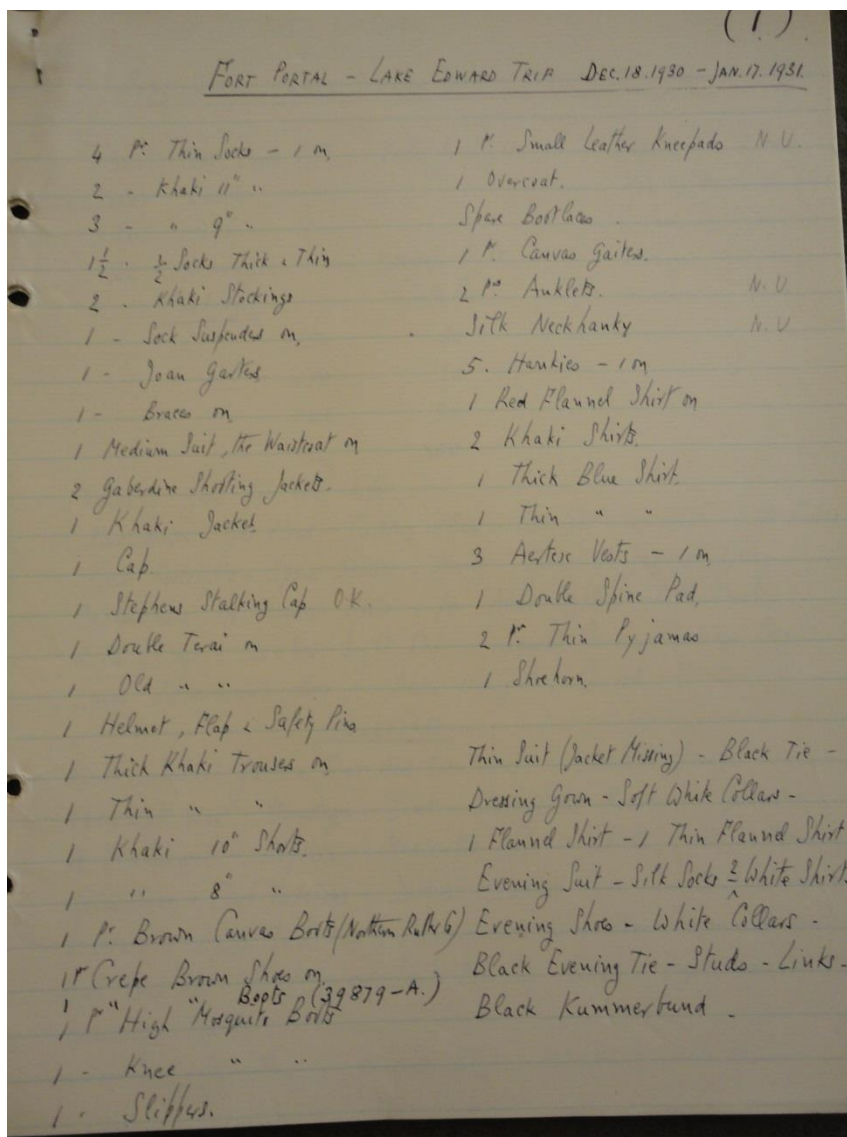 (1).
FORT PORTAL – LAKE EDWARD TRIP DEC. 18. 1930 – JAN. 17. 1931.
4 Pr. Thin Socks – 1 on
2 - Khaki 11" "
3 - " 9" "
1½ - ½ Socks Thick & Thin
2 - Khaki Stockings
1 - Sock Suspenders on
1 - Joan Garters
1 - Braces on
1 Medium Suit, the Waistcoat on
2 Gaberdine Shooting Jackets.
1 Khaki Jacket
1 Cap.
1 Stephens Stalking Cap O.K.
1 Double Terai on
1 Old " "
1 Helmet, Flap & Safety Pins
1 Thick Khaki Trousers on
1 Thin " "
1 Khaki 10" Shorts.
1 " 8" "
1 Pr. Brown Canvas Boots (Northern Rubber Co)
1 Pr Crepe Brown Shoes on
" " Boots (39879-A.)
1 Pr High Mosquito Boots
1 - Knee " "
1 - Slippers.
1 Pr. Small Leather Kneepads N.U.
1 Overcoat.
Spare Bootlaces.
1 Pr. Canvas Gaiters.
2 Prs Anklets. N.U.
Silk Neckhanky N.U.
5. Hankies – 1 on
1 Red Flannel Shirt on
2 Khaki Shirts.
1 Thick Blue Shirt.
1 Thin " "
3 Aertex Vests – 1 on
1 Double Spine Pad.
2 Pr. Thin Pyjamas
1 Shoehorn.
Thin Suit (Jacket Missing) – Black Tie –
Dressing Gown – Soft White Collars –
1 Flannel Shirt – 1 Thin Flannel Shirt
Evening Suit – Silk Socks – 2 White Shirts
Evening Shoes – White Collars –
Black Evening Tie – Studs – Links –
Black Kummerbund.